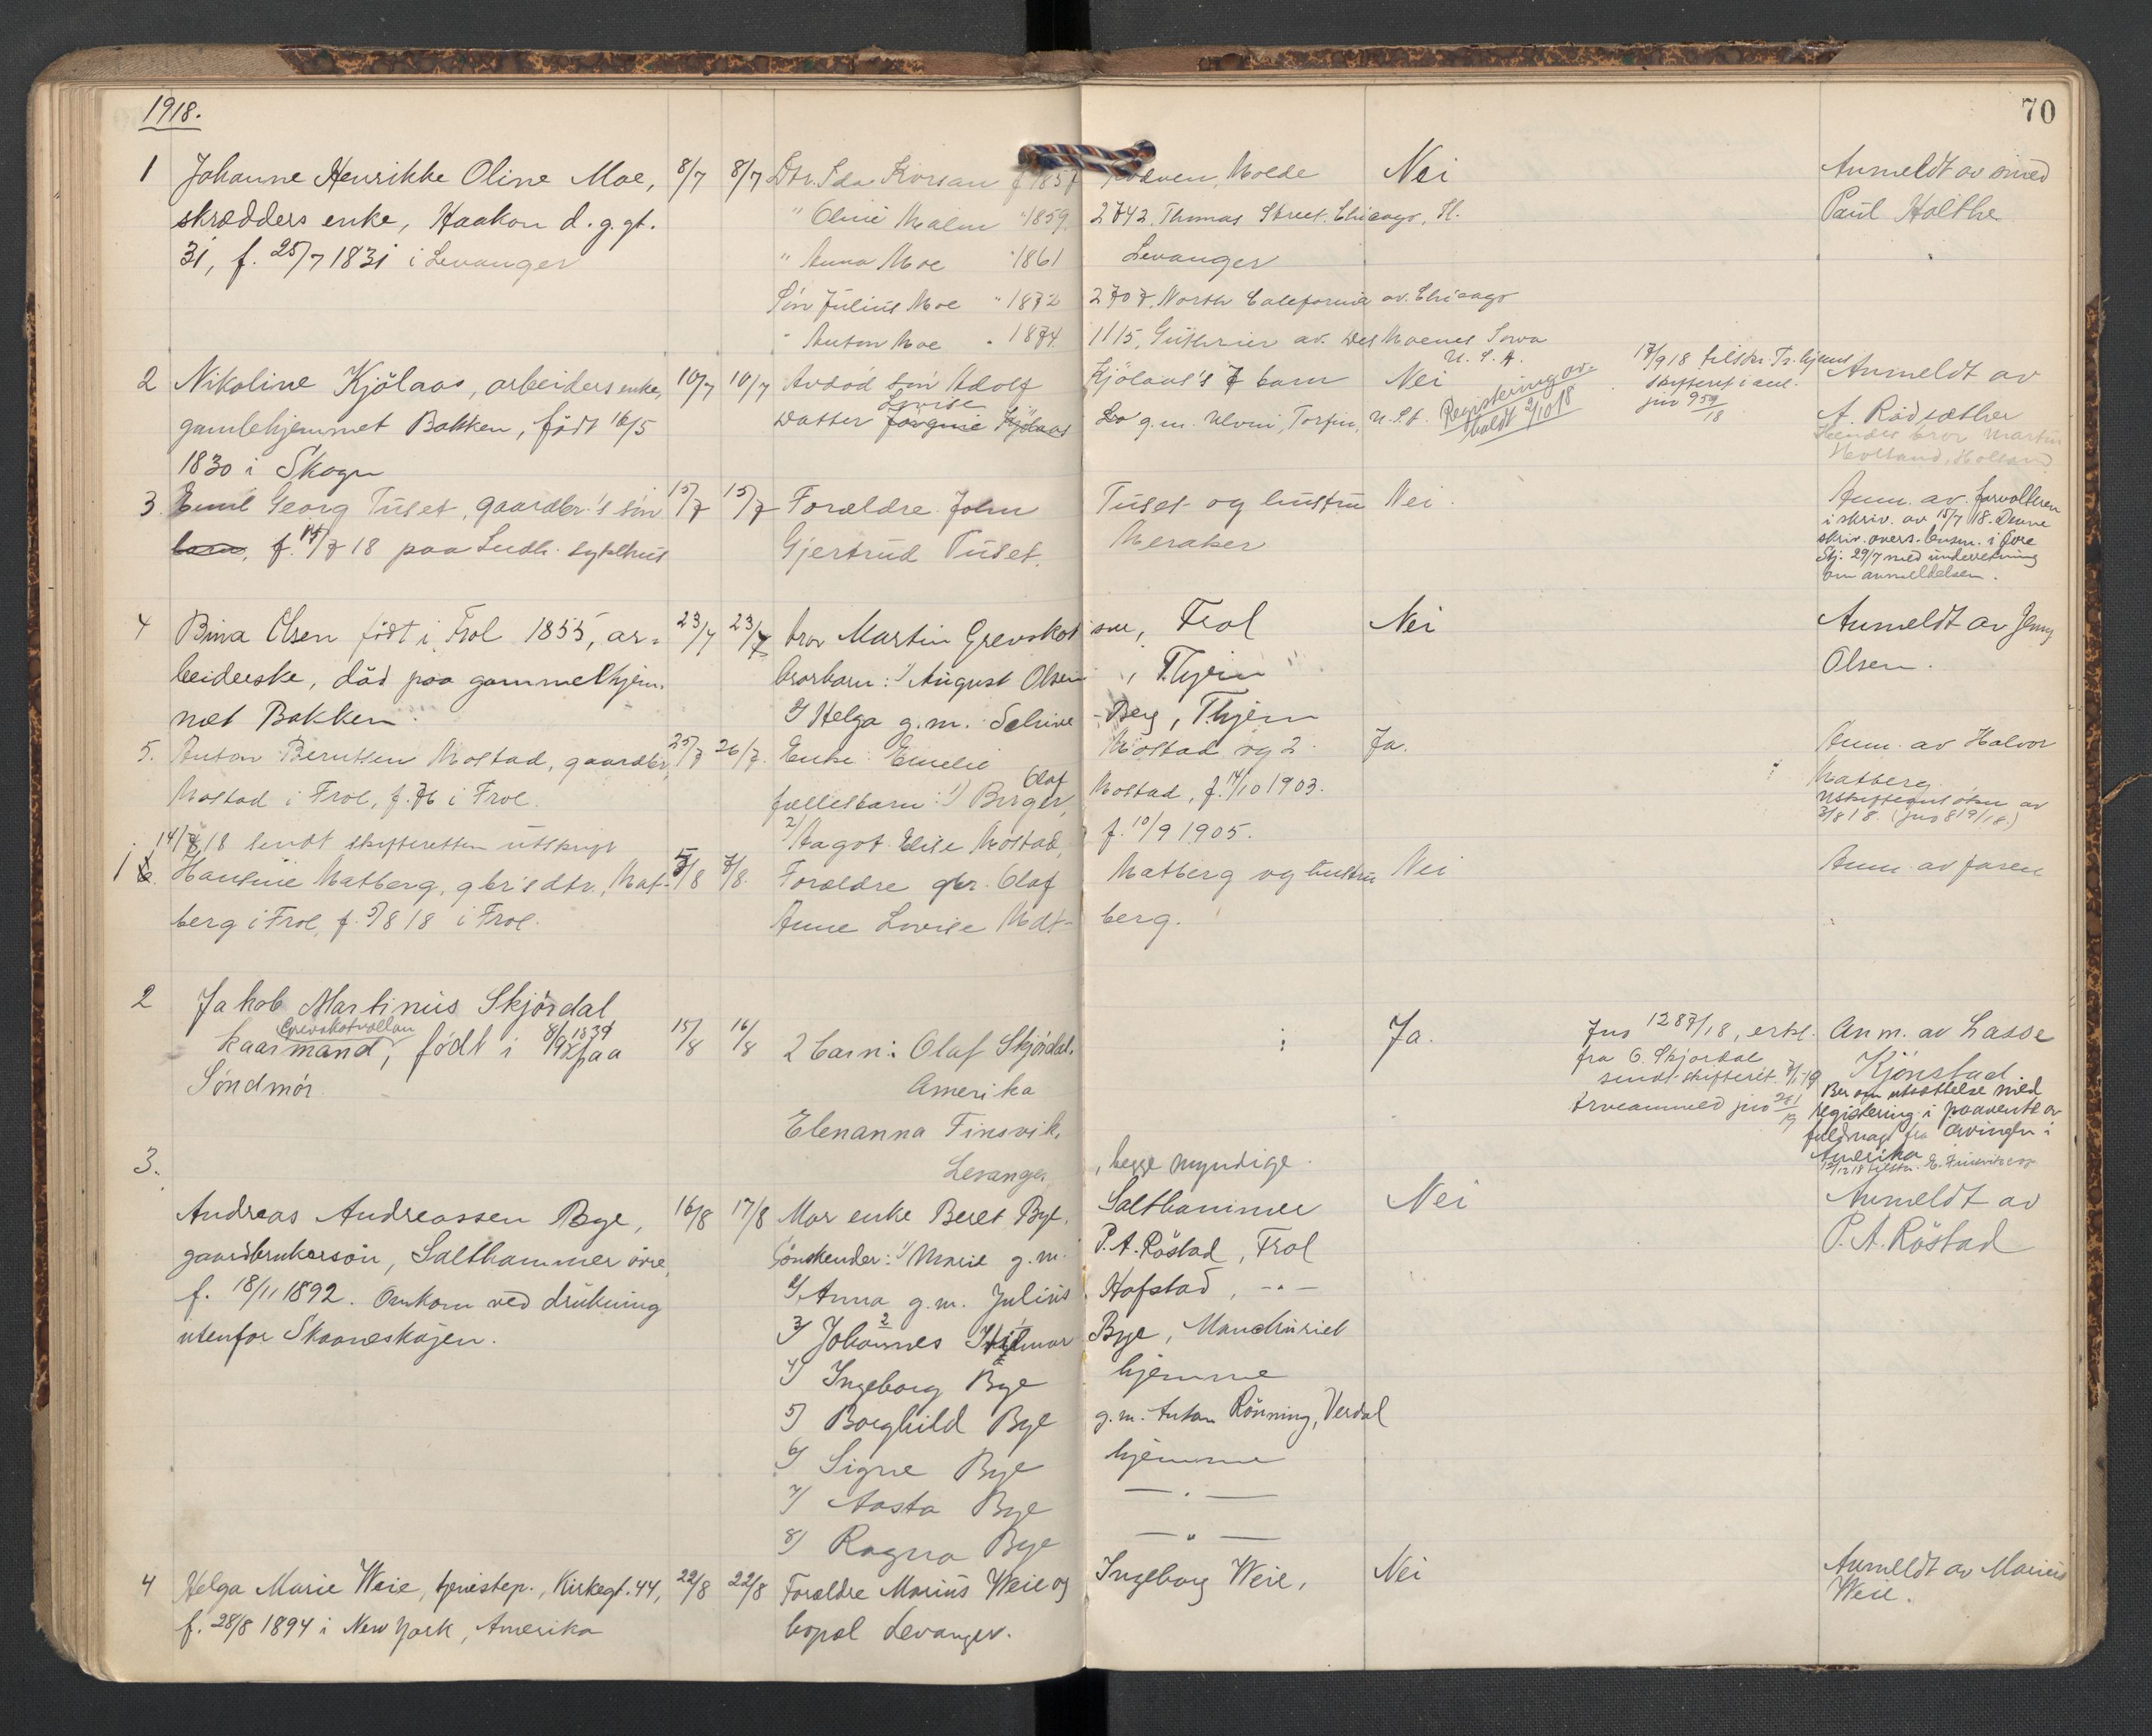 1918.
70
1 Johanne Henrikke Oline Moe, 8/7 8/7 Dtr. Ida Korsan f 1857 Molde Nei Anmeldt av smed
skrædders enke, Haakon d. g. gt. " Oline Malm " 1859. 2742, Thomas Street. Chicago, Il. Paul Holthe
31, f. 25/7 1831 i Levanger " Anna Moe " 1861 Levanger
Søn Julius Moe " 1872 2707, North California av. Chicago
" Anton Moe " 1874 1115, av. Des Moenes Iowa
U. S. A.
2 Nikoline Kjölaas, arbeiders enke, 10/7 10/7 Avdöd sön Adolf Kjölaas's 7 barn Nei 17/9 18 tilskr. Tr.hjems Anmeldt av
skifteret i anl.
jnr 959/18
Registrering av-
holdt 2/10 18
Lovise
gamlehjemmet Bakken, födt 16/5 Datter Jörgine Kjölaas g. m. Torfin, U. S. A. A. Rådsæther
1830 i Skogn Hendes bror Martin
Holland, Holland
3. Emil Georg Tuset, gaardbr.'s sön 15/7 15/7 Forældre John Tuset og hustru Nei. Anm. av forvalteren
i skriv. av 15/7 18. Denne
barn, f. 14/7 18 paa Indh. sykehus Gjertrud Tuset. Meraker skriv. overs. lensm. i övre
Stj. 29/7 med underretning
om anmeldelsen.
4 Bina Olsen födt i Frol 1855, ar- 23/7 23/7 bror Martin Grevskot sve, Frol Nei Anmeldt av Jenny
beiderske, död paa gammelhjem- brorbarn: 1/ August Olsen, T.hjem Olsen.
met Bakken. 2/ Helga g. m. Schive - Berg, T.hjem
5. Anton Berntsen Mostad, gaardbr, 25/7 26/7. Enke Emelie Mostad og 2 Ja. Anm. av Halvor
Mostad i Frol, f. 76 i Frol. fællesbarn: 1) Birger Olaf Mostad, f. 14/10 1903. Matberg
3/8 18. (jnr 819/18.)
14/8 18 sendt skifteretten utskrift 2) Aagot Elise Mostad, f. 10/9 1905.
1 6. Hansine Matberg, gbr's dtr., Mat- 5/8 7/8. Forældre gbr. Olaf Matberg og hustru Nei Anm. av faren
berg i Frol, f. 5/8 18 i Frol. Anne Lovise Mat- berg.
2 Jakob Martinus Skjördal
Grevskotvollan
kaarmand, födt i 8/9 1834 paa 15/8 16/8 2 barn: Olaf Skjördal. Ja. Jnr 1287/18, erkl. Anm. av Lasse
Söndmör. Amerika fra O. Skjördal Kjönstad
sendt skifteret. 7/1-19 Ber om utsættelse med
Arveanmeld jnr 281/19 registrering i paavente av
Elenanna Finsvik, fuldmagt fra arvingen i
Amerika
Levanger, begge myndige.
3. Andreas Andreassen Bye, 16/8 17/8 Mor enke Beret Bye. Salthammer Nei Anmeldt av
gaardbrukersön, Salthammer övre, Söskender: 1/ Marie g. m. P. A. Röstad, Frol P. A. Röstad
f. 18/11 1892. Omkom ved drukning 2/ Anna g. m. Julius Hofstad, -"-
utenfor Skaaneskajen. 3/ Johannes Hilmar Bye, Manchuriet
4/ Ingeborg Bye hjemme
5/ Borghild Bye g. m. Anton Rönning, Verdal
6/ Signe Bye hjemme
7/ Aasta Bye -"-
8/ Ragna Bye -"-
4 Helga Marie Weie, tjenestep., Kirkegt. 44, 22/8 22/8 Forældre Marius Weie og Ingeborg Weie, Nei Anmeldt av Marius
f. 28/8 1894 i New York, Amerika bopæl Levanger. Weie.